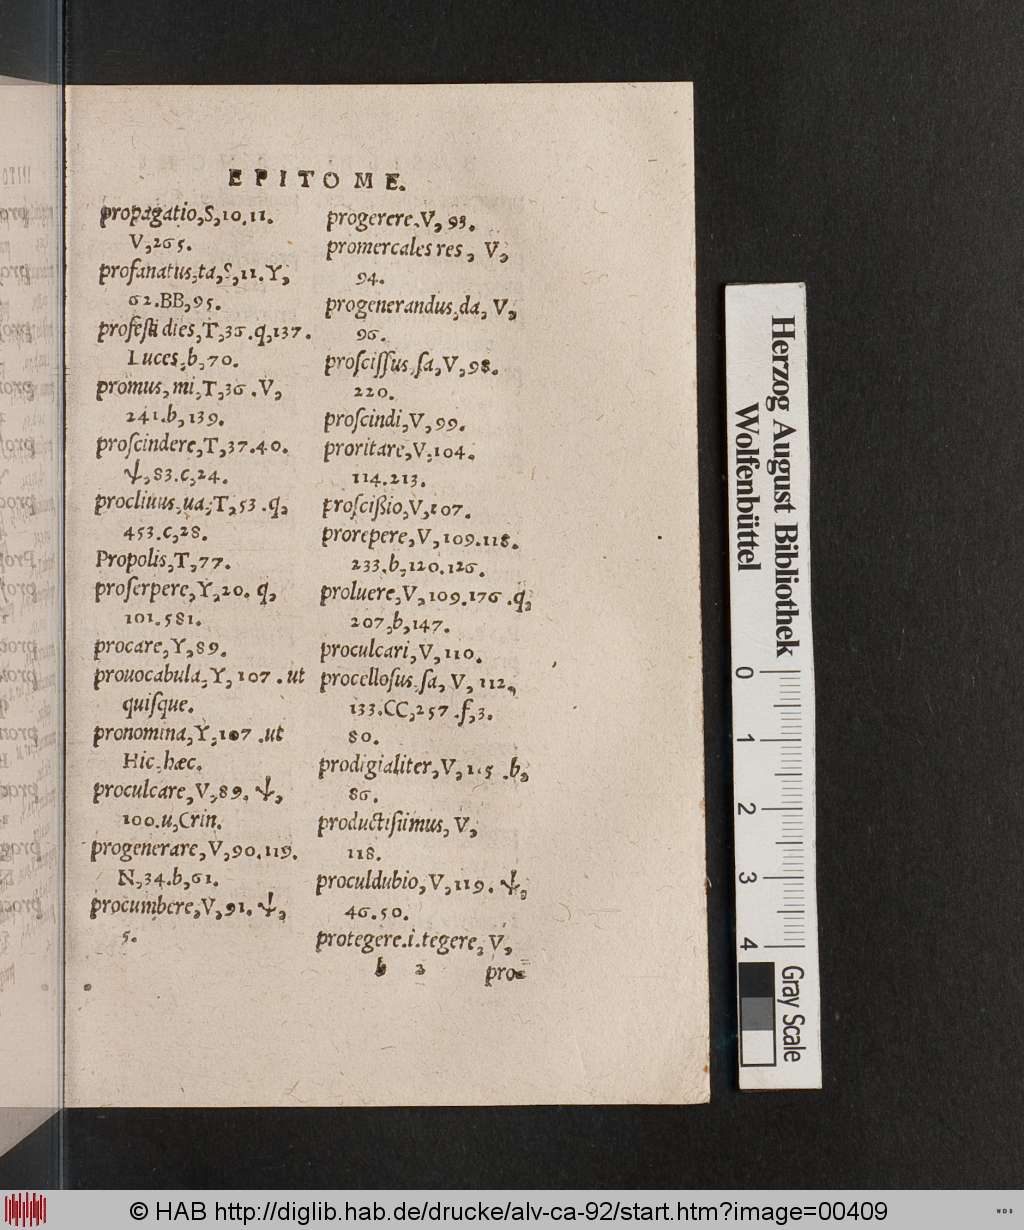 EPITOME.
propagatio,S,10.11.
V,265.
profanatus,ta,S,11.Y,
62.BB,95.
profesti dies,T,36.q,137.
Luces,b,70.
promus,mi,T,36.V,
241.b,139.
proſcindere,T,37.40.
ψ,83.c,24.
procliuus,ua,T,53.q,
453.c,28.
Propolis,T,77.
proſerpere,Y,20. q,
101.581.
procare,Y,89.
prouocabula,Y,107.ut
quiſque.
pronomina,Y,107.ut
Hic,hæc.
proculcare,V,89.ψ,
100.u,Crin.
progenerare,V,90.119.
N,34.b,61.
procumbere,V,91.ψ,
5.
progerere,V,93.
promercales res, V,
94.
progenerandus,da, V,
96.
proſciſſus,ſa,V,98.
220.
proſcindi,V,99.
proritare,V,104.
114.213.
proſcißio,V,107.
prorepere,V,109.118.
233.b,120.126.
proluere,V,109.176.q,
207,b,147.
proculcari,V,110.
procelloſus,ſa, V, 112,
133.CC,257.f,3.
80.
prodigialiter,V,115.b,
86.
productiſsimus, V,
118.
proculdubio,V,119. ψ,
46.50.
protegere.i.tegere, V,
b 2 pro=
Herzog August Bibliothek
Wolfenbüttel
0 1 2 3 4
Gray Scale
© HAB http://diglib.hab.de/drucke/alv-ca-92/start.htm?image=00409